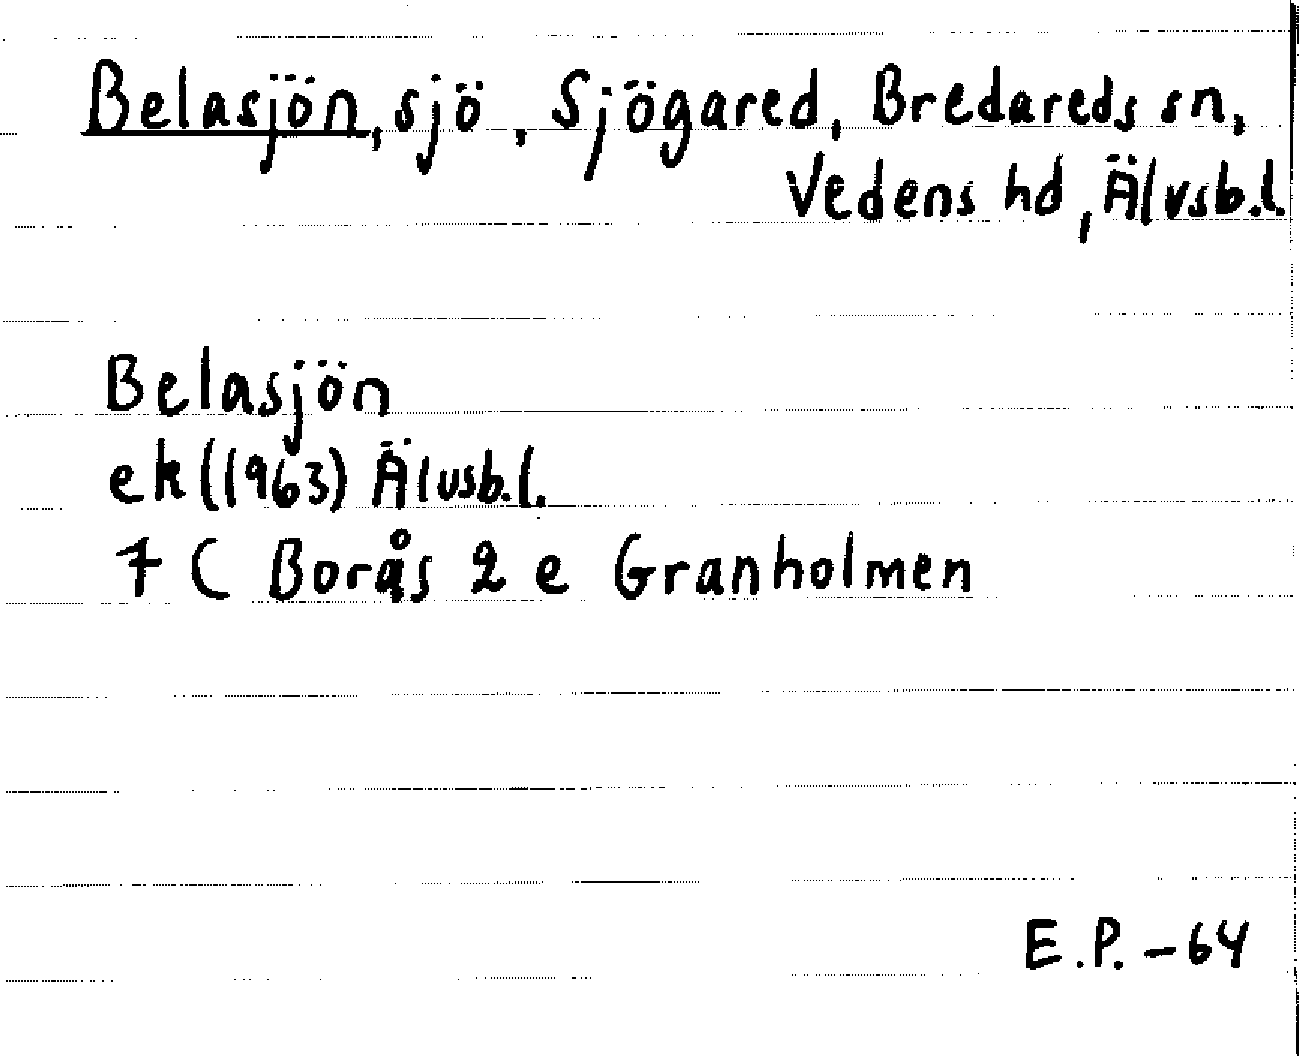 Belasjön, sjö, Sjögared, Bredareds sn,
Vedens hd, Älvsb.l.
Belasjön
ek ((1963) Älvsb.l.
7 C Borås 2 e Granholmen
E.P. – 64